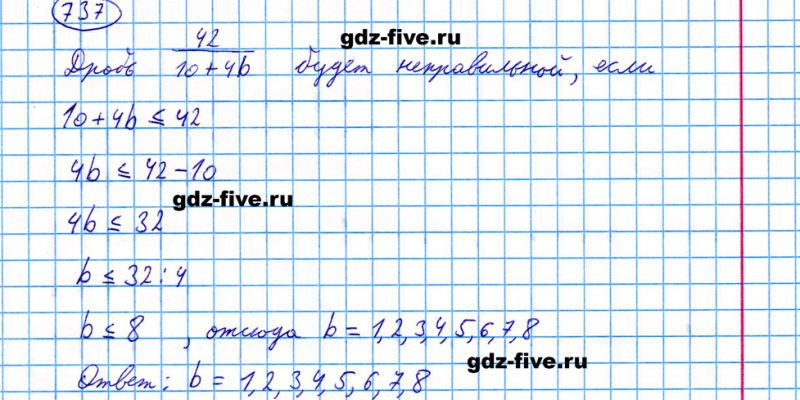 737
gdz-five.ru
Дробь 42/(10+4b) будет неправильной, если
10+4b ≤ 42
4b ≤ 42-10
gdz-five.ru
4b ≤ 32
b ≤ 32:4
b ≤ 8 , отсюда b = 1,2,3,4,5,6,7,8
gdz-five.ru
Ответ: b = 1,2,3,4,5,6,7,8